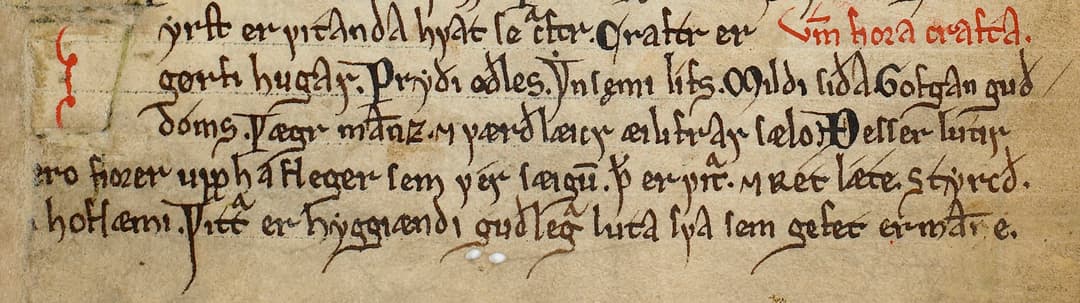 yrst er vitanda hvat se craftr. Craftr er Vm fiora crafta.
gørfi hugar. Prydi oðles. Ynsęmi lifs. Mildi siða Gofgan guð
doms. Vægr manz. ⁊ værdlæicr æilifrar sælo. Þesser lutir
ero fiorer upphafleger sem ver sægiū. þ̄ er vit. ⁊ Ret læte. styrcð.
hofsæmi. Vitt er hyggiændi guðlegra luta sva sem gefet er man e.